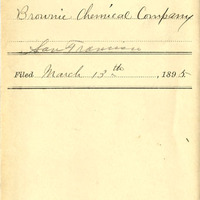 Brownie Chemical Company
San Francisco
Filed March 13th, 1895